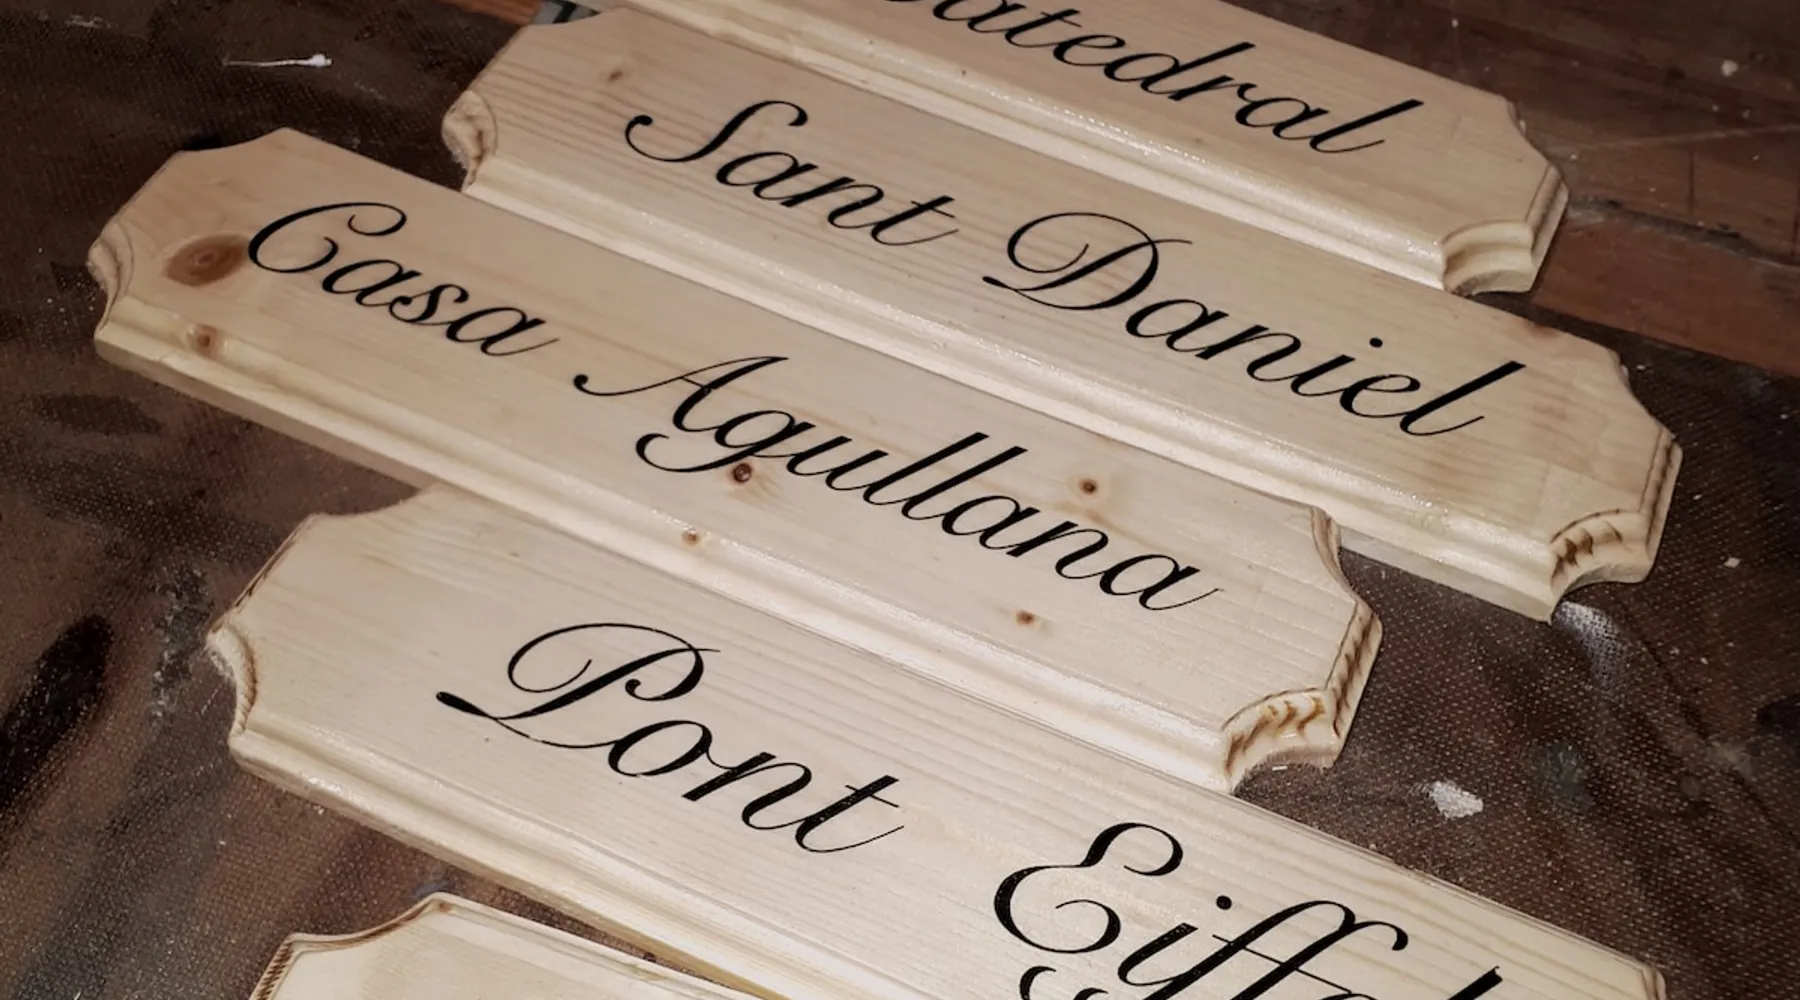 Catedral
Sant Daniel
Casa Agullana
Pont Eiffel